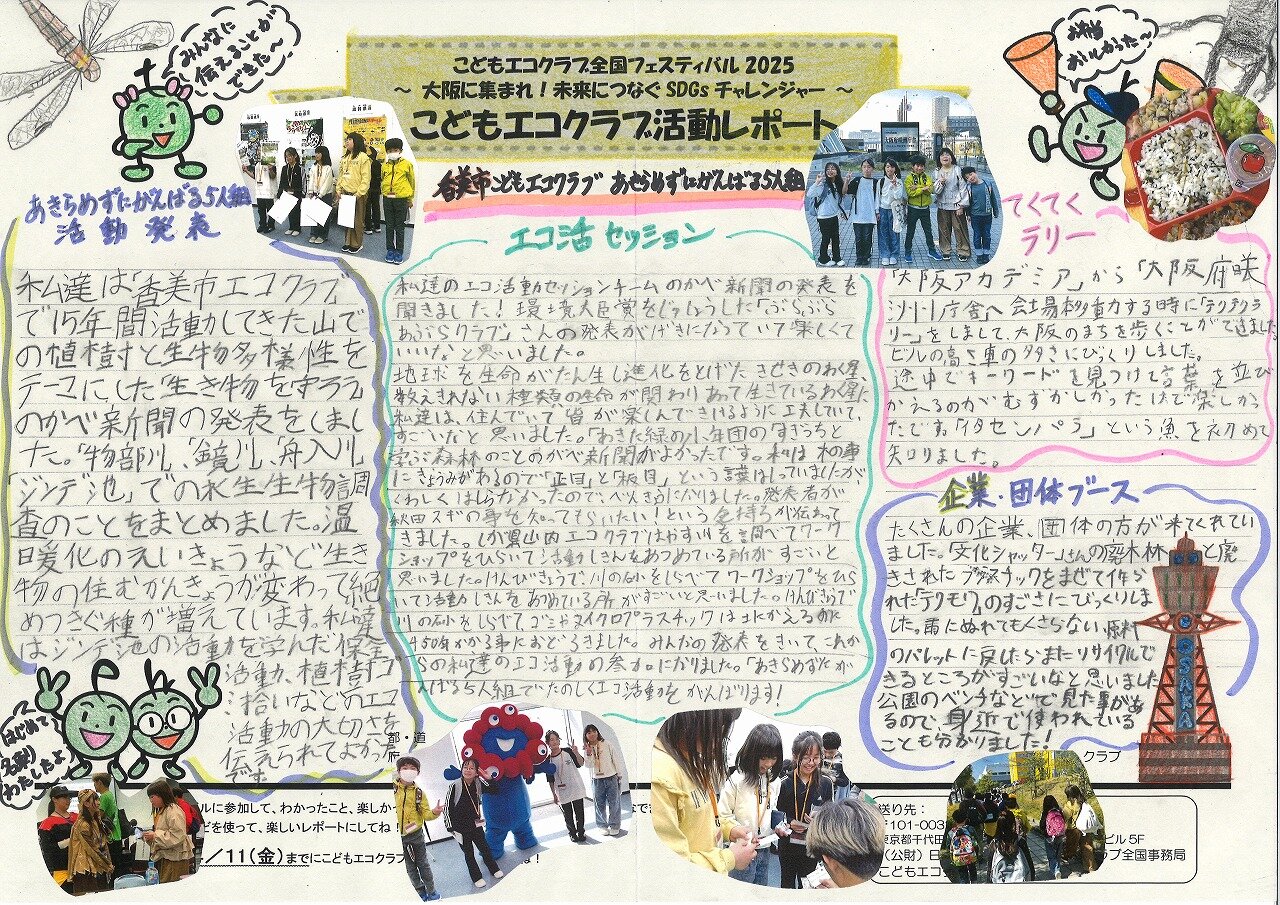 こどもエコクラブ全国フェスティバル 2025
～ 大阪に集まれ！未来につなぐ SDGs チャレンジャー ～
こどもエコクラブ活動レポート
香美市こどもエコクラブ あきらめずにがんばる5人組
みんなに
伝えることが
できた～
お弁当
おいしかった～
あきらめずにがんばる5人組
活動発表
私達は「香美市エコクラブ」
で15年間活動してきた山で
の植樹と生物多様性を
テーマにした「生き物を守ろう」
のかべ新聞の発表をしまし
た。「物部川」、「鏡川」、「舟入川」
「ジンデ池」での水生生物調
査のことをまとめました。温
暖化のえいきょうなど生き
物の住むかんきょうが変わって絶
めつきぐ種が増えています。私達
はジンデ池の活動を学んだ保全
活動、植樹、ゴミ
拾いなどのエコ
活動の大切さを
伝えられてよかった
です
はじめて
名刺
わたしたよ
エコ活セッション
私達のエコ活動セッションチームのかべ新聞の発表を
聞きました！環境大臣賞をじゅしょうした「ぶらぶら
あぶらクラブ」さんの発表がげきになっていて楽しくて
いいなと思いました。
地球を生命がたん生し進化をとげたきせきのわく星、
数えきれない種類の生命が関わりあって生きているわく星に
私達は、住んでいて皆が楽しんできけるように工夫していて、
すごいなと思いました。「あきた緑の少年団の「すぎうちと
学ぶ森林のことのかべ新聞がよかったです。私は木の事
にきょうみがあるので「正目」と「板目」という言葉はしっていましたが
くわしくはしらなかったので、べんきょうになりました。発表者が
秋田スギの事を知ってもらいたい！という気持ちが伝わって
きました。しが県山内エコクラブはやす川を調べてワーク
ショップをひらいて活動しきんをあつめている所がすごいと
思いました。けんびきょうで、川の砂をしらべてワークショップをひら
いて活動しきんをあつめている所がすごいと思いました。けんびきょうで
川の砂をしらべてゴミやマイクロプラスチックは土にかえるのに
450年かかる事におどろきました。みんなの発表をきいて、これか
らの私達のエコ活動の参加になりました。「あきらめずにが
んばる5人組でたのしくエコ活動をがんばります！
てくてく
ラリー
「大阪アカデミア」から「大阪府咲
洲庁舎」へ会場移動する時に「テクテクラ
リー」をしまして、大阪のまちを歩くことができました。
ビルの高さ車の多さにびっくりしました。
途中でキーワードを見つけて言葉を並び
かえるのがむずかしかったけど楽しかっ
たです。「イタセンパラ」という魚を初めて
知りました。
企業・団体ブース
たくさんの企業、団体の方が来てくれてい
ました。「文化シャッター」さんの廃木材と廃
きされたプラスチックをまぜて作ら
れた「テクモク」のすごさにびっくりしま
した。雨にぬれてもくさらない、原料
のパレットに戻したらまたリサイクルで
きるところがすごいなと思いました
公園のベンチなどで見た事があ
るので、身近で使われている
ことも分かりました！
OSAKA
都・道
府
クラブ
ルに参加して、わかったこと、楽しかっ
どを使って、楽しいレポートにしてね！
4／11(金)までにこどもエコクラブ
ね！
送り先：
〒101-003
東京都千代田
ビル 5F
（公財）日
ラブ全国事務局
こどもエコク